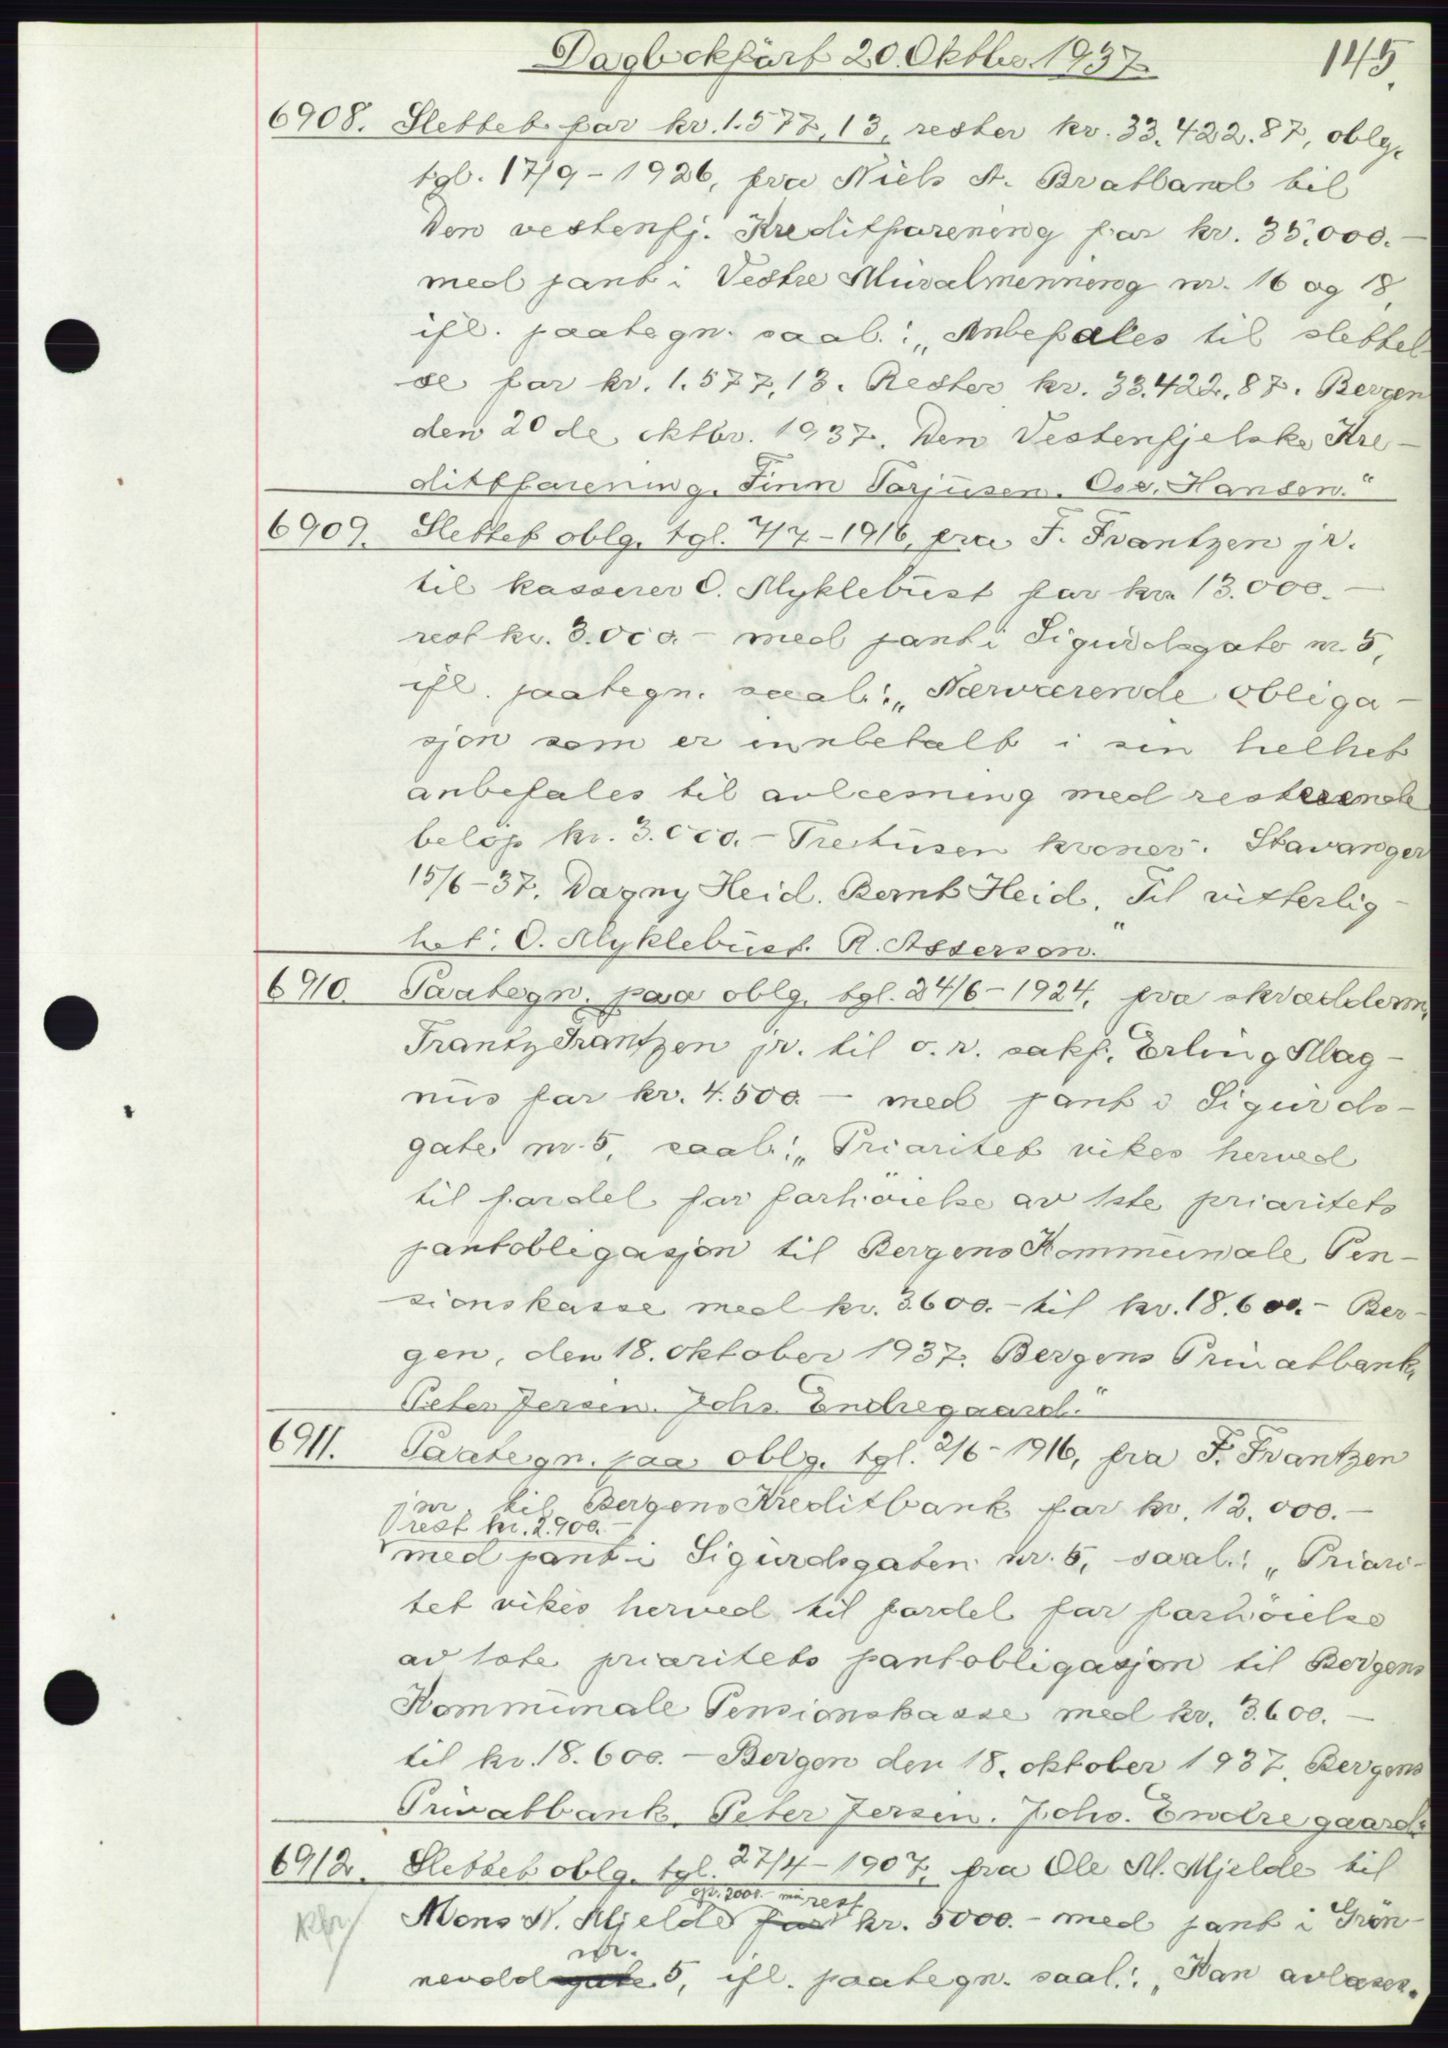 Dagbokført 20. Oktbr. 1937.
145.
6908. Slettet for kr. 1.577,13, rester kr. 33.422.87, oblg.
tgl. 17/9-1926, fra Niels A. Bratland til
Den vestenfj. Kreditforening for kr. 35.000.-
med pant i Vestre Muralmenning nr. 16 og 18,
ifl. paategn. saal.: „Anbefales til slettel-
se for kr. 1.577,13. Rester kr. 33.422.87. Bergen
den 20de oktbr. 1937. Den Vestenfjelske Kre-
dittforening. Finn Torjusen. Osv. Hansen.“
6909. Slettet oblg. tgl. 7/7-1916, fra F. Frantzen jr.
til kasserer O. Myklebust for kr. 13.000.-
rest kr. 3.000.- med pant i Sigurdsgate nr. 5,
ifl. paategn. saal.: „Nærværende obliga-
sjon som er innbetalt i sin helhet
anbefales til avlæsning med resterende
beløp kr. 3.000.- Tretusen kroner. Stavanger
15/6-37. Dagny Heid. Bernt Heid. Til vitterlig-
het: O. Myklebust. R. Asserson.“
6910. Paategn. paa oblg. tgl. 24/6-1924, fra skrædderm.
Frantz Frantzen jr. til o.r. sakf. Erling Mag-
nus for kr. 4.500.- med pant i Sigurds-
gate nr. 5, saal.: „Prioritet vikes herved
til fordel for forhöielse av 1ste prioritets
pantobligasjon til Bergens Kommunale Pen-
sionskasse med kr. 3.600.- til kr. 18.600.- Ber-
gen, den 18. oktober 1937. Bergens Privatbank.
Peter Jersin. Johs. Endregaard.“
6911. Paategn. paa oblg. tgl. 2/6-1916, fra F. Frantzen
jnr. til Bergens Kreditbank for kr. 12.000.-
rest kr. 2.900.-
med pant i Sigurdsgaten nr. 5, saal.: „Priori-
tet vikes herved til fordel for forhöielse
av 1ste prioritets pantobligasjon til Bergens
Kommunale Pensionskasse med kr. 3.600.-
til kr. 18.600.- Bergen den 18. oktober 1937. Bergens
Privatbank. Peter Jersin. Johs. Endregaard.“
6912. Slettet oblg. tgl. 27/4-1907, fra Ole M. Mjelde til
opr. 7000.- nu rest
Mons N. Mjelde for kr. 5000.- med pant i Grön-
nr.
nevold gate 5, ifl. paategn. saal.: „Kan avlæses.